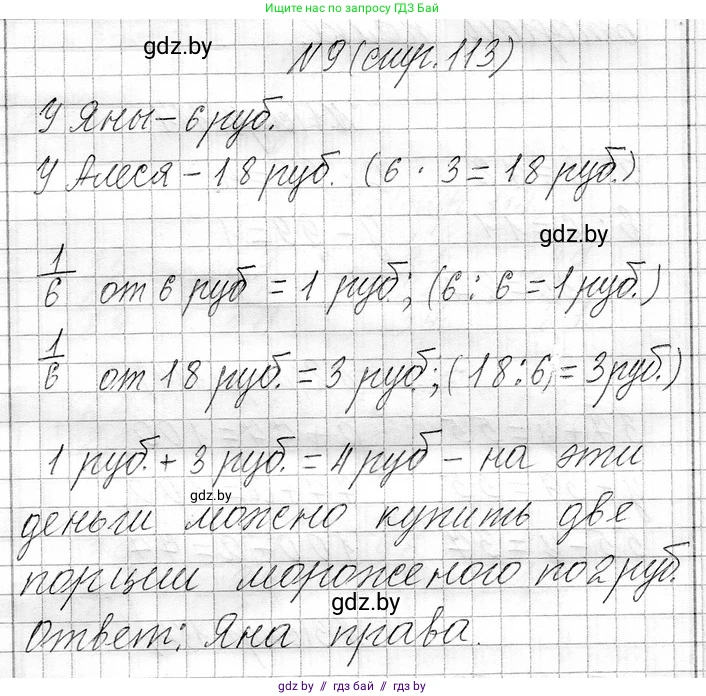 Ищите нас по запросу ГДЗ Бай
gdz.by
№9 (стр. 113)
У Яны – 6 руб.
У Алеся – 18 руб. (6 · 3 = 18 руб.)
gdz.by
1/6 от 6 руб = 1 руб.; (6 : 6 = 1 руб.)
1/6 от 18 руб. = 3 руб.; (18 : 6 = 3 руб.)
1 руб. + 3 руб. = 4 руб – на эти
gdz.by
деньги можно купить две
порции мороженого по 2 руб.
gdz.by
Ответ: Яна права.
gdz.by // гдз бай // gdz.by